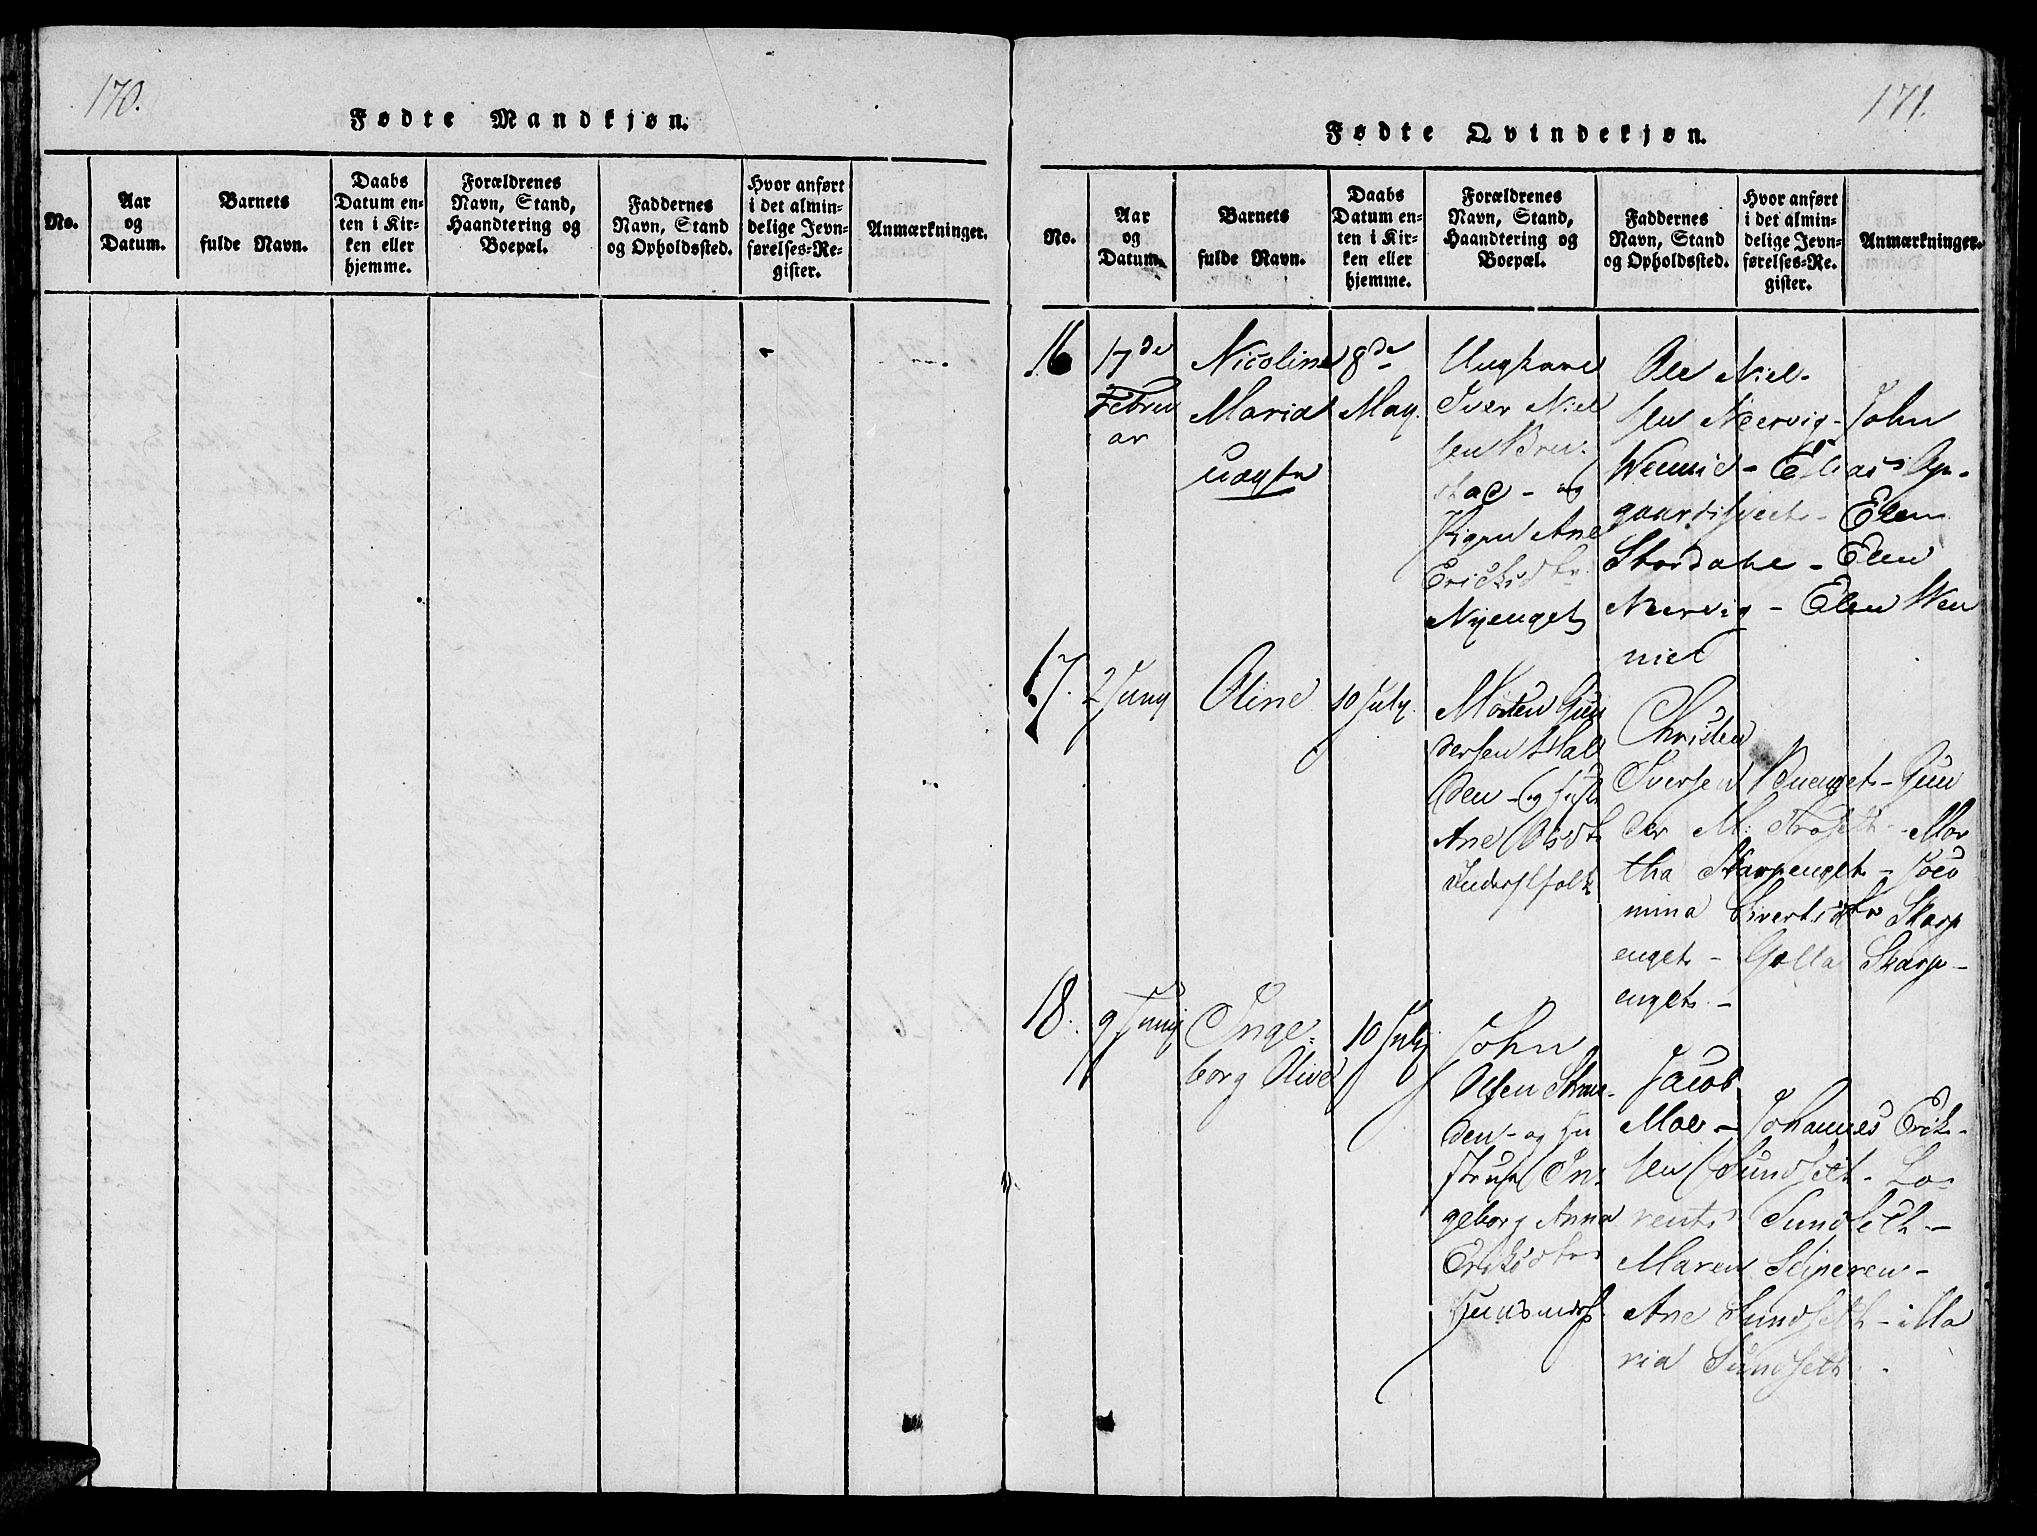 170.
Fødte Mandkjøn.
No.
Aar
og
Datum.
Barnets
fulde Navn.
Daabs
Datum en-
ten i Kir-
ken eller
hjemme.
Forældrenes
Navn, Stand,
Haandtering og
Boepæl.
Faddernes
Navn, Stand
og Opholdssted.
Hvor anført
i det almin-
delige Jevn-
førelses-Re-
gister.
Anmærkninger.
171.
Fødte Qvindekjøn.
No.
Aar
og
Datum.
Barnets
fulde Navn.
Daabs
Datum en-
ten i Kir-
ken eller
hjemme.
Forældrenes
Navn, Stand,
Haandtering og
Boepæl.
Faddernes
Navn, Stand
og Opholdssted.
Hvor anført
i det almin-
delige Jevn-
førelses-Re-
gister.
Anmærkninger.
16
17de
Febru
ar
Nicoline
Maria
uægte
8de
May.
Ungkarl
Iver Niel
sen Bru-
stad - og
Pigen Ane
Ericksdtr.
Nyenget
Ole Niel-
sen Nervig - John
Wennid - Elias
Elen
Stordahl - Elen
Nervig - Elen Wen
nied
17.
2 Juny
Oline
10 July.
Morten Gun
dersen Hall
den - og Hustr
Ane Olsdtr
Inderstfolk
Christen
Iversen Nyenget - Gun
der M. - Mar
tha Skarpenget - Jaco
mina Sivertsdtr Skarp
enget - Golla Skarp-
enget -
18.
9 Juny
Inge-
borg Olive
10 July
John
Olsen Stran-
den - og Hu
strue In-
geborg Anna
Eriksdtr
Huusmdsf.
Jacob
Moe - Johannes Erik-
sen Sundseth - Lo-
rents Sundseth -
Maren
Ane Sundseth - Ma
ria Sundseth